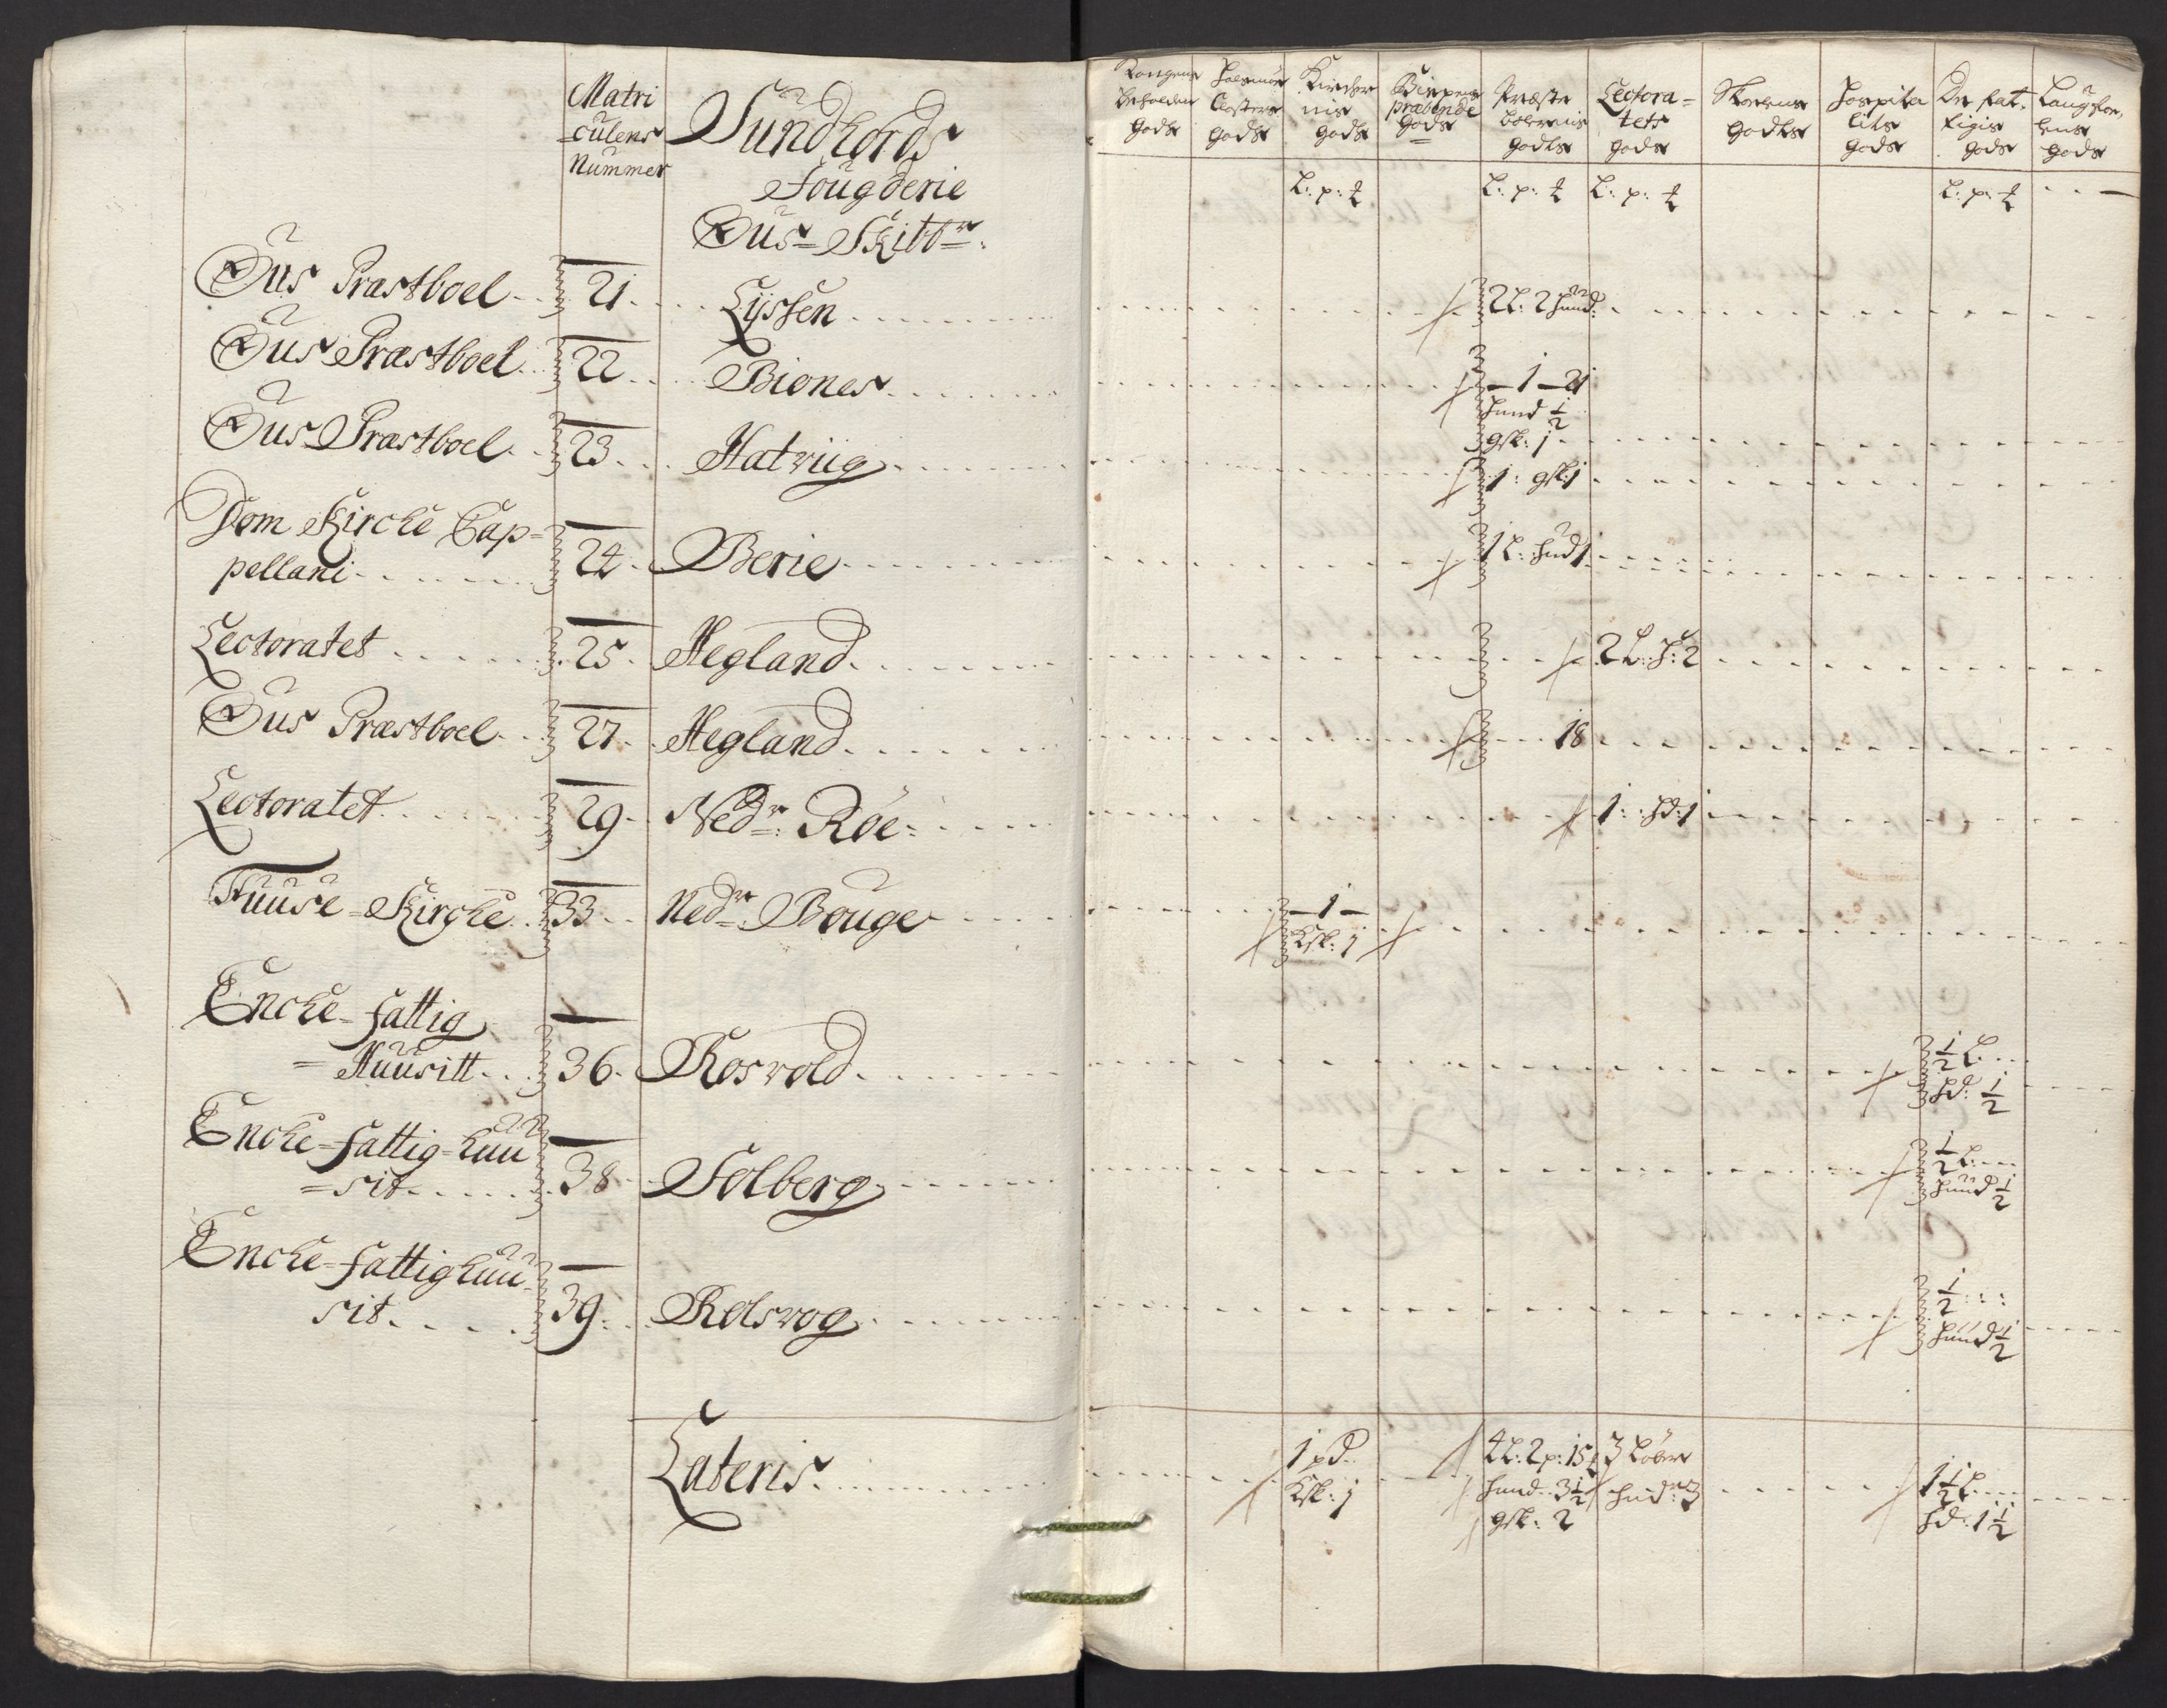 Matri
=culens
Nummer
Sundhords
Fougderie
Ous= Skibbr:
Ous Præstboel 21 Lyssen
Ous Præstboel 22 Biones
Ous Præstboel 23 Hatviig
Dom Kirche Cap=
pellani 24 Berie
Lectoratet 25 Hegland
Ous Præstboel 27 Hegland
Lectoratet 29 Nedr: Röe
Fuuse=Kirche 33 Nedr: Bouge
Encke=fattig
=Huusitt 36 Rosvold
Encke=fattig=huu
=sit 38 Solberg
Encke=fattighuu
sit 39 Rolsvog
Lateris
Kongens beholden Gods
Closters Gods
Kircher nis Gods
Bispens præbende Gods
Præste bolernis Godts
Lectora=
tets
Gods
Skolens Godts
Hospita
lits
Gods
De fat.
tigis
Gods
Laugstoe
lens
Gods
L: p: ℔ L: p: ℔ L: p: ℔ L: p: ℔
2L: 2 huud:
— 1 — 21
huud ½
gsk: j
1: gsk: j
1 L: hud 1
2 L: h: 2
18
1: hd: 1
— 1 —
Ksk: j
½ L:
hd: ½
½ L:
huud ½
½
huud ½
1 pd. 4L: 2p: 15 3 Löber 1½ L:
Ksk: j huud: 3½ hud: 3 hd: 1½
gsk: 2